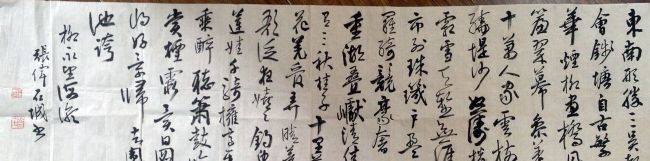 東南形勝三吳
會錢塘自古繁
華煙柳畫橋風
簾翠幕參差
十萬人家雲樹
繞堤沙怒濤捲
霜雪天塹無涯
市列珠璣戶盈
羅綺競豪奢
重湖疊巘清佳
有三秋桂子十里
花羌管弄晴
歌泛夜嬉嬉釣
蓮娃千騎擁高
乘醉聽簫鼓吟
賞煙霞異日圖
將好景歸去鳳
池誇
柳永望海潮
張偉石城書